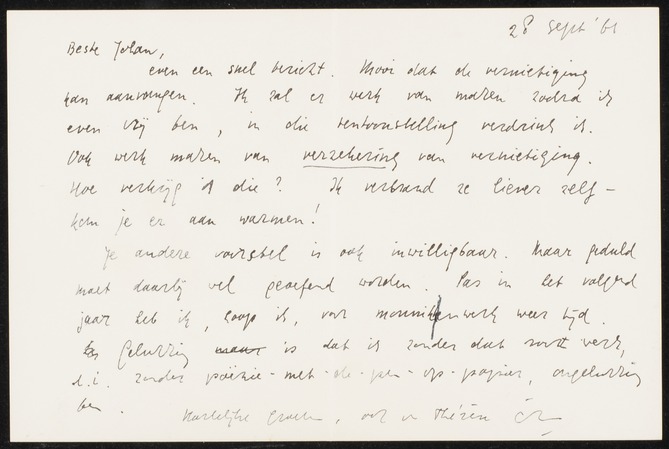 28 Sept '61
Beste Johan,
even een snel bericht. Mooi dat de vernietiging
kan aanvangen. Ik zal er werk van maken zodra ik
even vrij ben, in die tentoonstelling verdrink ik.
Ook werk maken van verzekering van vernietiging.
Hoe verkrijg ik die? Ik verbrand ze liever zelf –
kom je er aan warmen!
Je andere voorstel is ook inwilligbaar. Maar geduld
moet daarbij wel geoefend worden. Pas in het volgend
jaar heb ik, hoop ik, voor monnikenwerk weer tijd.
Gelukkig maar is dat ik zonder dat soort werk,
d.i. zonder poëzie-met-de-pen-op-papier, ongelukkig
ben.
Hartelijke groeten, ook v.